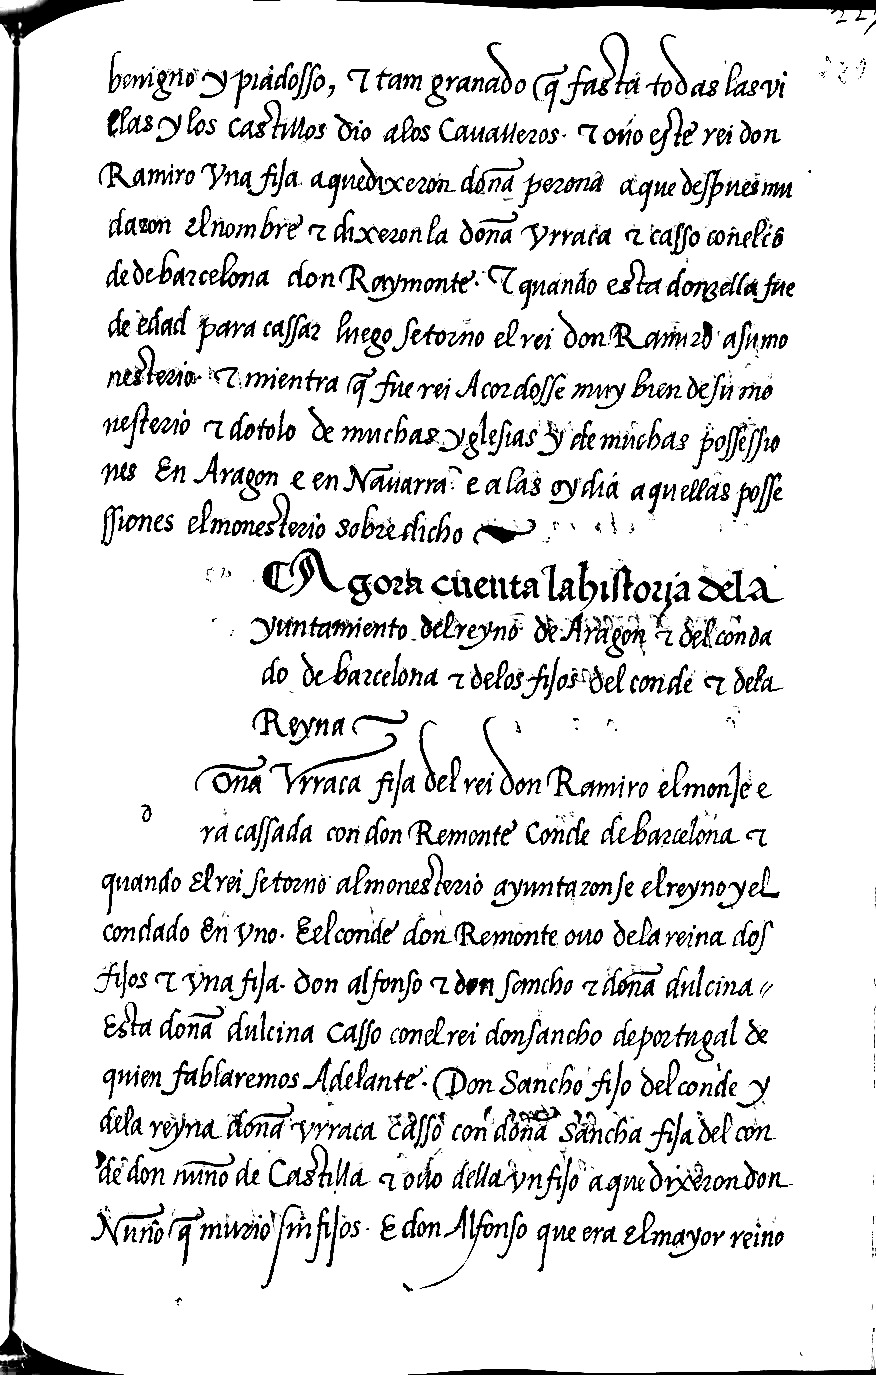 benigno y piadosso, τ tam granado q̃ fasta todas las vi
llas y los castillos dio a los Caualleros. τ ouo este rei don
Ramiro Vna fija a que dixeron doña perona a que despues mu
daron el nombre τ dixeron la doña Vrraca τ casso con el cō
de de barcelona don Raymonte. τ quando esta donzella fue
de edad para cassar luego se torno el rei don Ramiro a su mo
nesterio. τ mientra q̃ fue rei Acordosse muy bien de su mo
nesterio τ dotolo de muchas yglesias y de muchas possessio
nes En Aragon e en Nauarra e a las oy dia aquellas posse
ssiones el monesterio sobre dicho
Agora cuenta la historia del a
yuntamiento del reyno de Aragon τ del conda
do de barcelona τ de los fijos del conde τ de la
Reyna
d
oña Vrraca fija del rei don Ramiro el monje e
ra cassada con don Remonte Conde de barcelona τ
quando El rei se torno al monesterio ayuntaron se el reyno y el
condado En vno. E el conde don Remonte ouo de la reina dos
fijos τ vna fija. don alfonso τ don sancho τ doña dulcina
Esta doña dulcina Casso con el rei don sancho de portugal de
quien fablaremos Adelante. Don Sancho fijo del conde y
de la reyna doña vrraca Casso con doña Sancha fija del con
de don nuño de Castilla τ ouo della vn fijo a que dixeron don
Nuño q̃ murio sin fijos. E don Alfonso que era El mayor reino